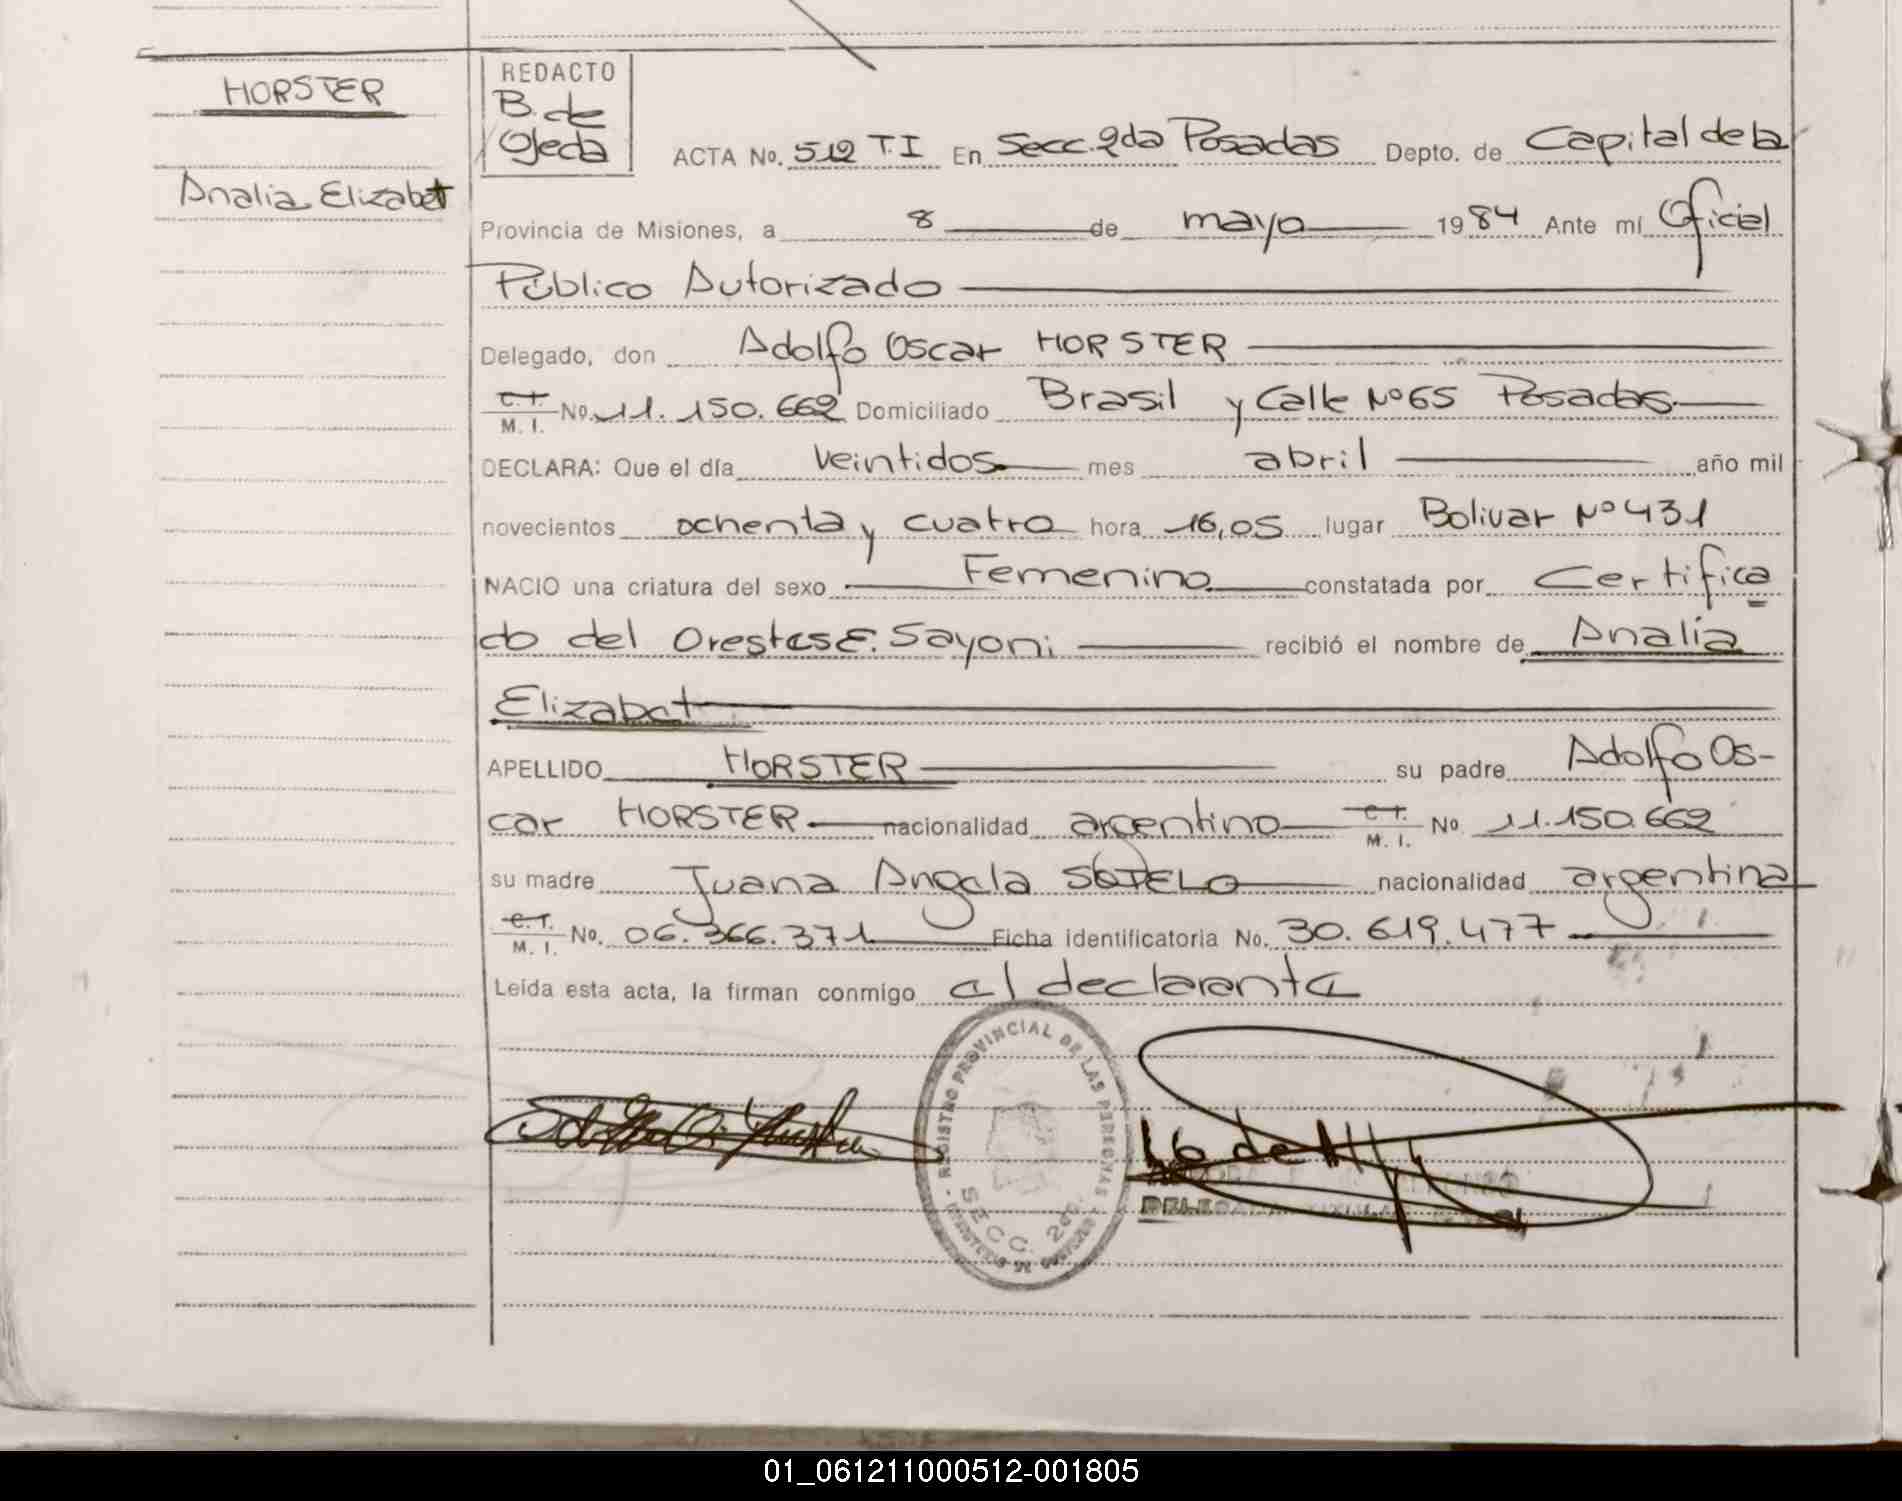 HORSTER
Analia Elizabet
REDACTO
B. de
Ojeda
ACTA No. 512 T.I En Secc. 2da Posadas Depto. de Capital de la
Provincia de Misiones, a 8 de mayo 1984 Ante mí Oficial
Público Autorizado
Delegado, don Adolfo Oscar HORSTER
C.I. M. I. No. 11.150.662 Domiciliado Brasil y Calle Nº65 Posadas
DECLARA: Que el día veintidos mes abril año mil
novecientos ochenta y cuatro hora 16,05 lugar Bolivar Nº431
NACIO una criatura del sexo Femenino constatada por Certifica
do del Orestes E. Sayoni recibió el nombre de Analía
Elizabet
APELLIDO HORSTER su padre Adolfo Os-
car HORSTER nacionalidad argentino C.I. M. I. No 11.150.662
su madre Juana Angela SOTELO nacionalidad argentina
C.I. M. I. No. 06.366.371 Ficha identificatoria No. 30.619.477
Leída esta acta, la firman conmigo el declarante
REGISTRO PROVINCIAL DE LAS PERSONAS
SECC. 2da.
01_061211000512-001805